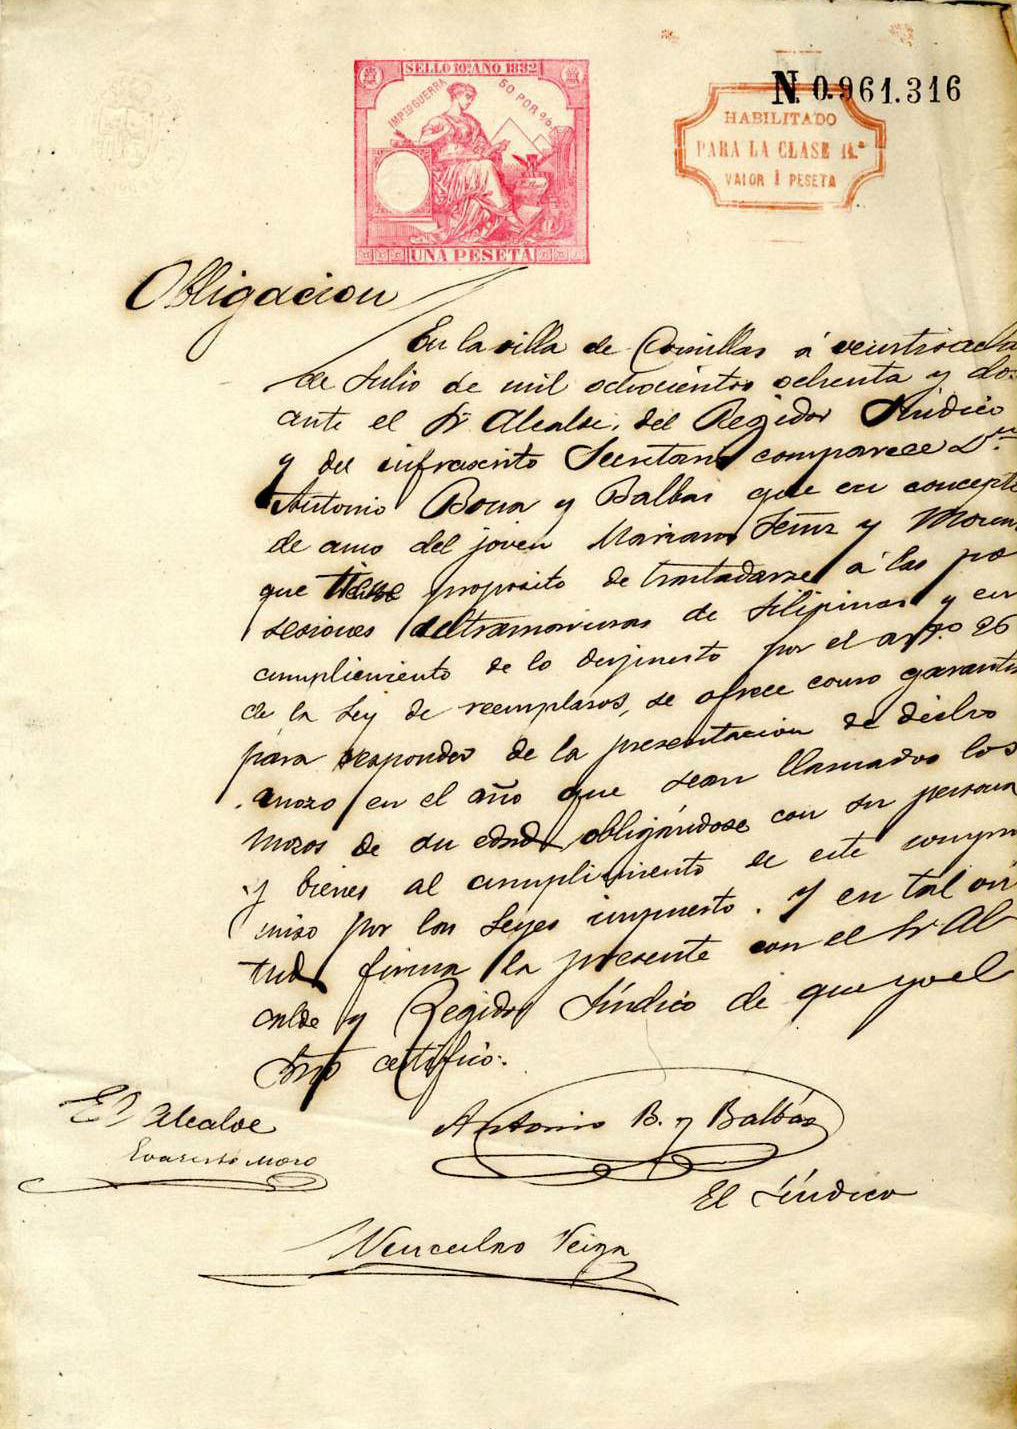 N. 0.961.316
SELLO 10º AÑO 1882
IMPTO GUERRA 50 POR %
UNA PESETA
HABILITADO
PARA LA CLASE 11.ª
VALOR 1 PESETA
Obligacion
En la villa de Comillas á veintiocho
de Julio de mil ochocientos ochenta y dos
ante el Sr Alcalde, del Regidor Síndico
y del infrascrito Secretario comparece D.n
Antonio Bona y Balbas que en concepto
de amo del joven Mariano y Moren
que tiene proposito de trasladarse á las po
sesiones ultramarinas de Filipinas y en
cumplimiento de lo dispuesto por el artº 26
de la Ley de reemplasos, se ofrece como garante
para responder de la presentacion de dicho
mozo en el año que sean llamados los
mozos de su edad, obligándose con su persona
y bienes al cumplimiento de este compro
miso por las Leyes impuesto. Y en tal vir
tud firma la presente con el Sr Al
calde y Regidor Síndico de que yo el
Srio certifico.
El Alcalde
Evaristo Moro
Antonio B. y Balbás
El Síndico
Wenceslao